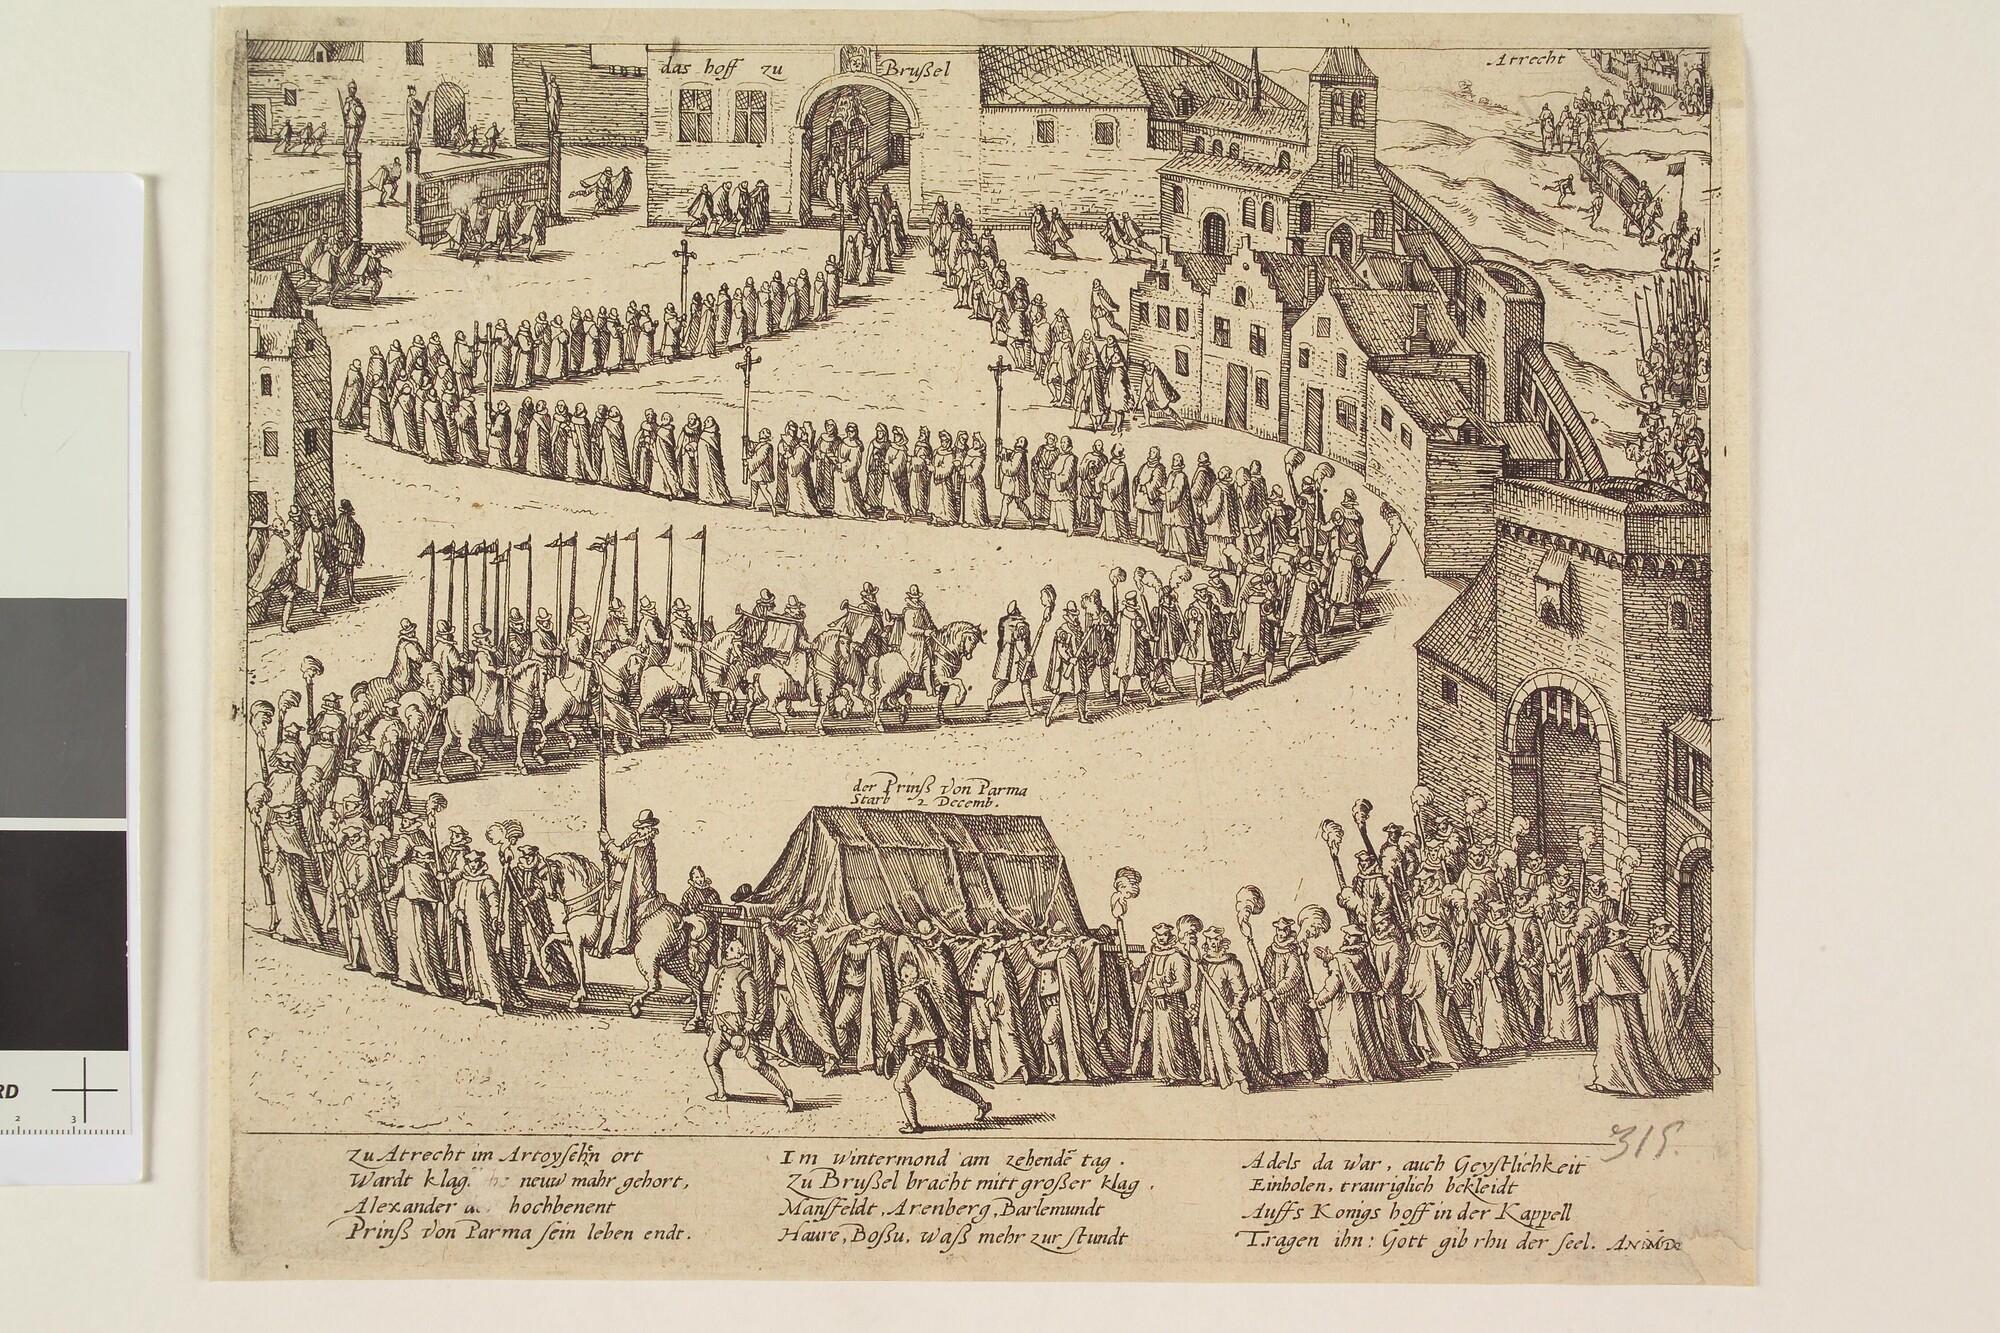 das hoff zu Brußel
Atrecht
der Prinß von Parma
Starb 2 Decemb.
Zu Atrecht im Artoyschen ort
Wardt klag neuw mahr gehort,
Alexander hochbenent
Prinß von Parma sein leben endt.
Im wintermond am zehendẽ tag.
Zu Brußel bracht mitt großer klag.
Mansfeldt, Arenberg, Barlemundt
Haure, Boßu, waß mehr zur stundt
Adels da war, auch Geystlichkeit
Einholen, trauriglich bekleidt
Auffs Konigs hoff in der Kappell
Tragen ihn: Gott gib rhu der seel.
315.
RD
2 3